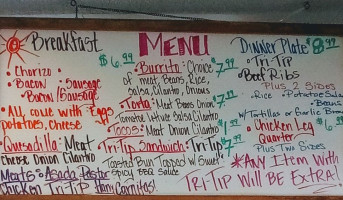 Breakfast $6.99
• Chorizo
• Bacon • Sausage
• Bacon/Sausage
• All come with Eggs
potatoes, cheese
• Quesadilla: Meat
cheese Onion Cilantro
Meats: Asada Pastor
Chicken Tri-Tip Ham Carnitas!
MENU
• Burrito: Choice
of meat, Beans, Rice,
Salsa, Cilantro, Onions
$7.99
• Torta: Meat Beans Onion
Tomatoe Lettuce Salsa Cilantro
• Tacos: Meat Onion Cilantro
• Tri-Tip Sandwich: Tri-Tip
Toasted Bun Topped w/ Sweet
Spicy BBQ Sauce
$7.99
Dinner Plate $8.99
• Tri-Tip
• Beef Ribs
Plus 2 Sides
• Rice • Potatoe Salad
• Beans
w/ Tortillas or Garlic Bread
• Chicken Leg
Quarter
Plus Two Sides
*Any Item With
Tri-Tip Will Be Extra!